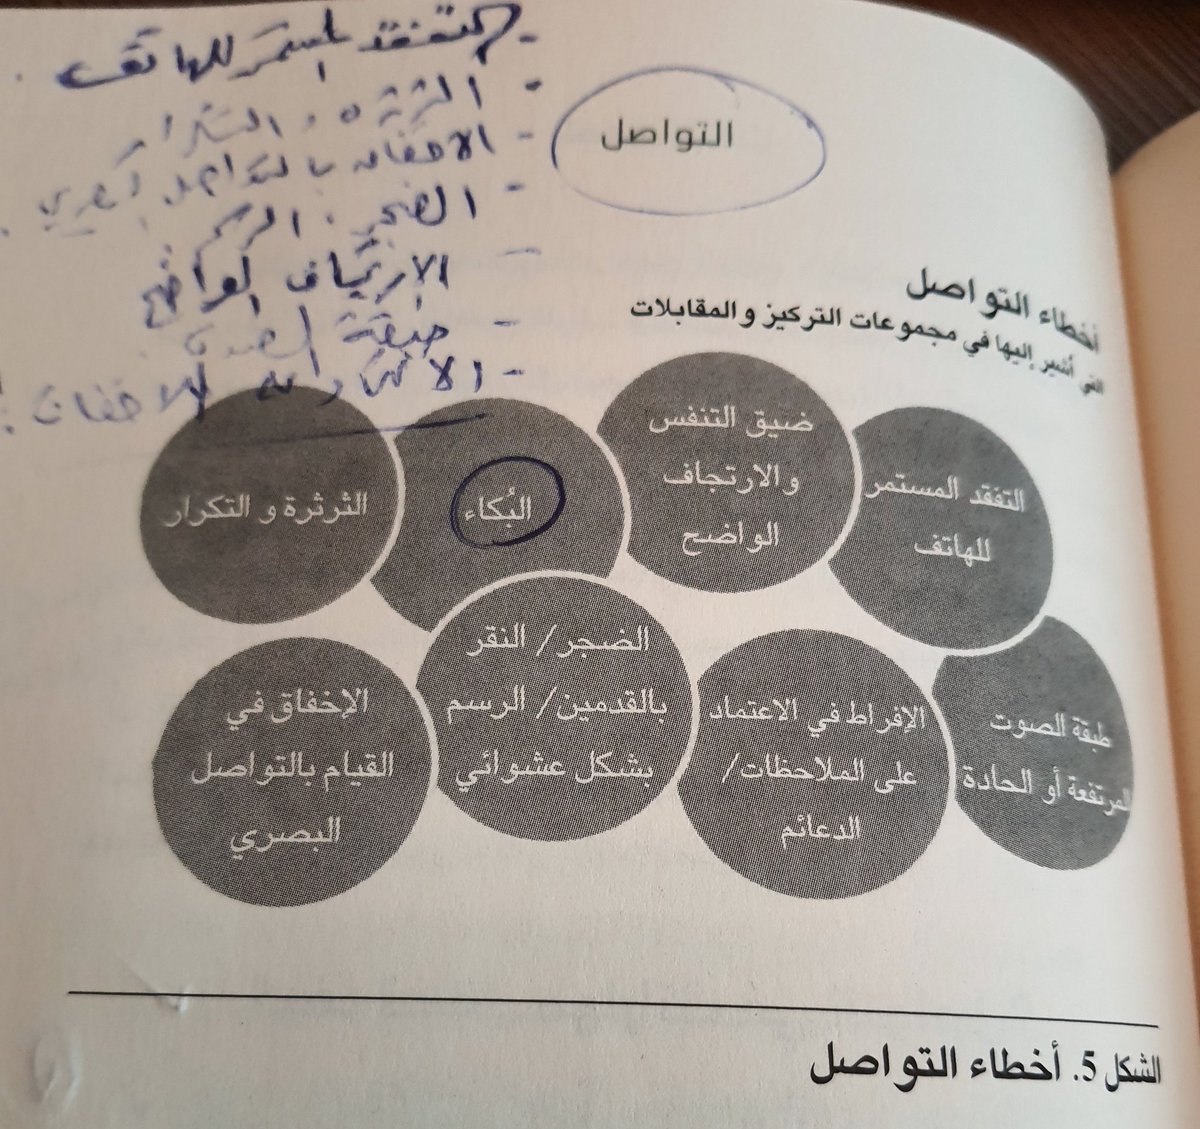 - التفقد المستمر للهاتف
- الثرثرة و التكرار
- الاخفاق بالتواصل البصري
- الضجر . الرسم
- الارتجاف الواضح
- طبقة الصوت
-
التواصل
أخطاء التواصل
التي أشير إليها في مجموعات التركيز والمقابلات
التفقد المستمر
للهاتف
ضيق التنفس
والارتجاف
الواضح
البُكاء
الثرثرة و التكرار
طبقة الصوت
المرتفعة أو الحادة
الإفراط في الاعتماد
على الملاحظات/
الدعائم
الضجر/ النقر
بالقدمين/ الرسم
بشكل عشوائي
الإخفاق في
القيام بالتواصل
البصري
الشكل 5. أخطاء التواصل